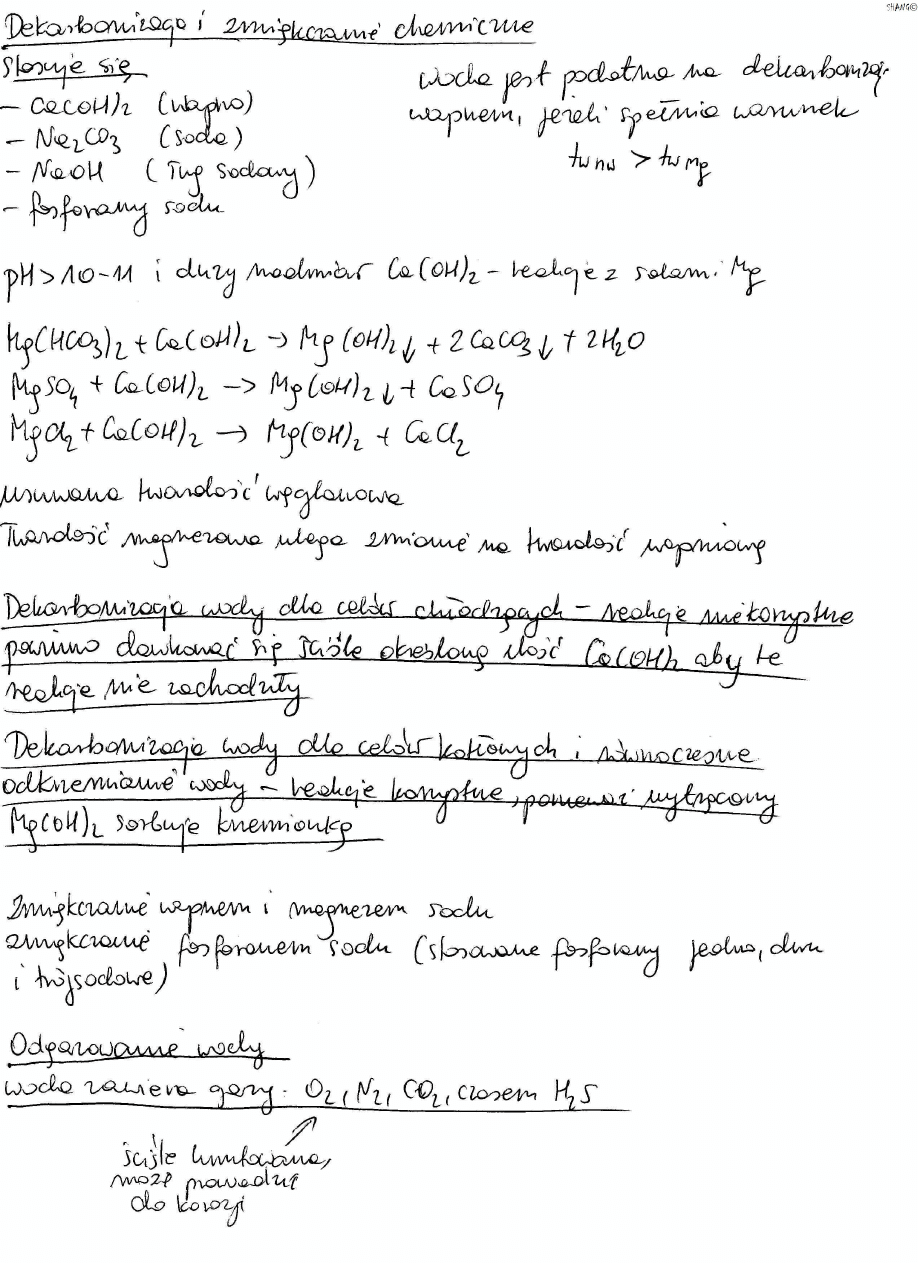 SHANG©
Dekarbonizacja i zmiękczanie chemiczne
Stosuje się
- Ca(OH)2 (wapno)
- Na2CO3 (soda)
- NaOH (ług sodowy)
- fosforany sodu
woda jest podatna na dekarbonizację
wapnem, jeżeli spełnia warunek
tw nw > tw Mg
pH > 10-11 i duży nadmiar Ca(OH)2 - reakcje z solami Mg
Mg(HCO3)2 + Ca(OH)2 → Mg(OH)2↓ + 2CaCO3↓ + 2H2O
MgSO4 + Ca(OH)2 → Mg(OH)2↓ + CaSO4
MgCl2 + Ca(OH)2 → Mg(OH)2 + CaCl2
usuwana twardość węglanowa
Twardość magnezowa ulega zmianie na twardość wapniową
Dekarbonizacja wody dla celów chłodzących - reakcje niekorzystne
powinno dawkować się ściśle określoną ilość Ca(OH)2 aby te
reakcje nie zachodziły
Dekarbonizacja wody dla celów kotłowych i równoczesne
odkrzemianie wody - reakcje korzystne, ponieważ wytrącony
Mg(OH)2 sorbuje krzemionkę
Zmiękczanie wapnem i magnezem sodu
zmiękczanie fosforanem sodu (stosowane fosforany jedno, dwu
i trójsodowe)
Odgazowanie wody
woda zawiera gazy: O2, N2, CO2, czasem H2S
ściśle limitowane,
może prowadzić
do korozji